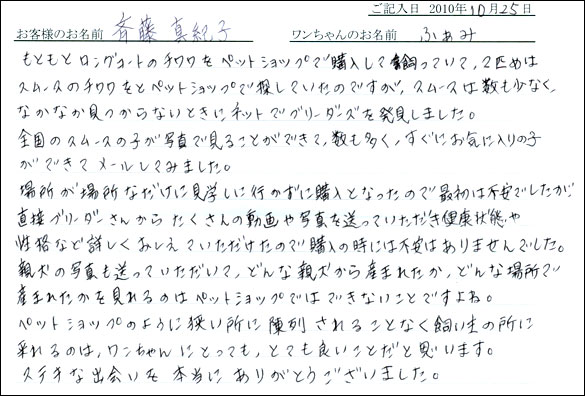 ご記入日 2010年10月25日
お客様のお名前 斉藤 真紀子 ワンちゃんのお名前 ふぁみ
もともとロングコートのチワワをペットショップで購入して飼っていて、2匹めは
スムースのチワワをとペットショップで探していたのですが、スムースは数も少なく、
なかなか見つからないときにネットでブリーダーズを発見しました。
全国のスムースの子が写真で見ることができて、数も多く、すぐにお気に入りの子
ができてメールしてみました。
場所が場所なだけに見学しに行かずに購入となったので最初は不安でしたが、
直接ブリーダーさんからたくさんの動画や写真を送っていただき健康状態や
性格など詳しくおしえていただけたので購入の時には不安はありませんでした。
親犬の写真も送っていただいて、どんな親犬から産まれたか、どんな場所で
産まれたかを見れるのはペットショップではできないことですよね。
ペットショップのように狭い所に陳列されることなく飼い主の所に
来れるのは、ワンちゃんにとっても、とても良いことだと思います。
ステキな出会いを本当にありがとうございました。